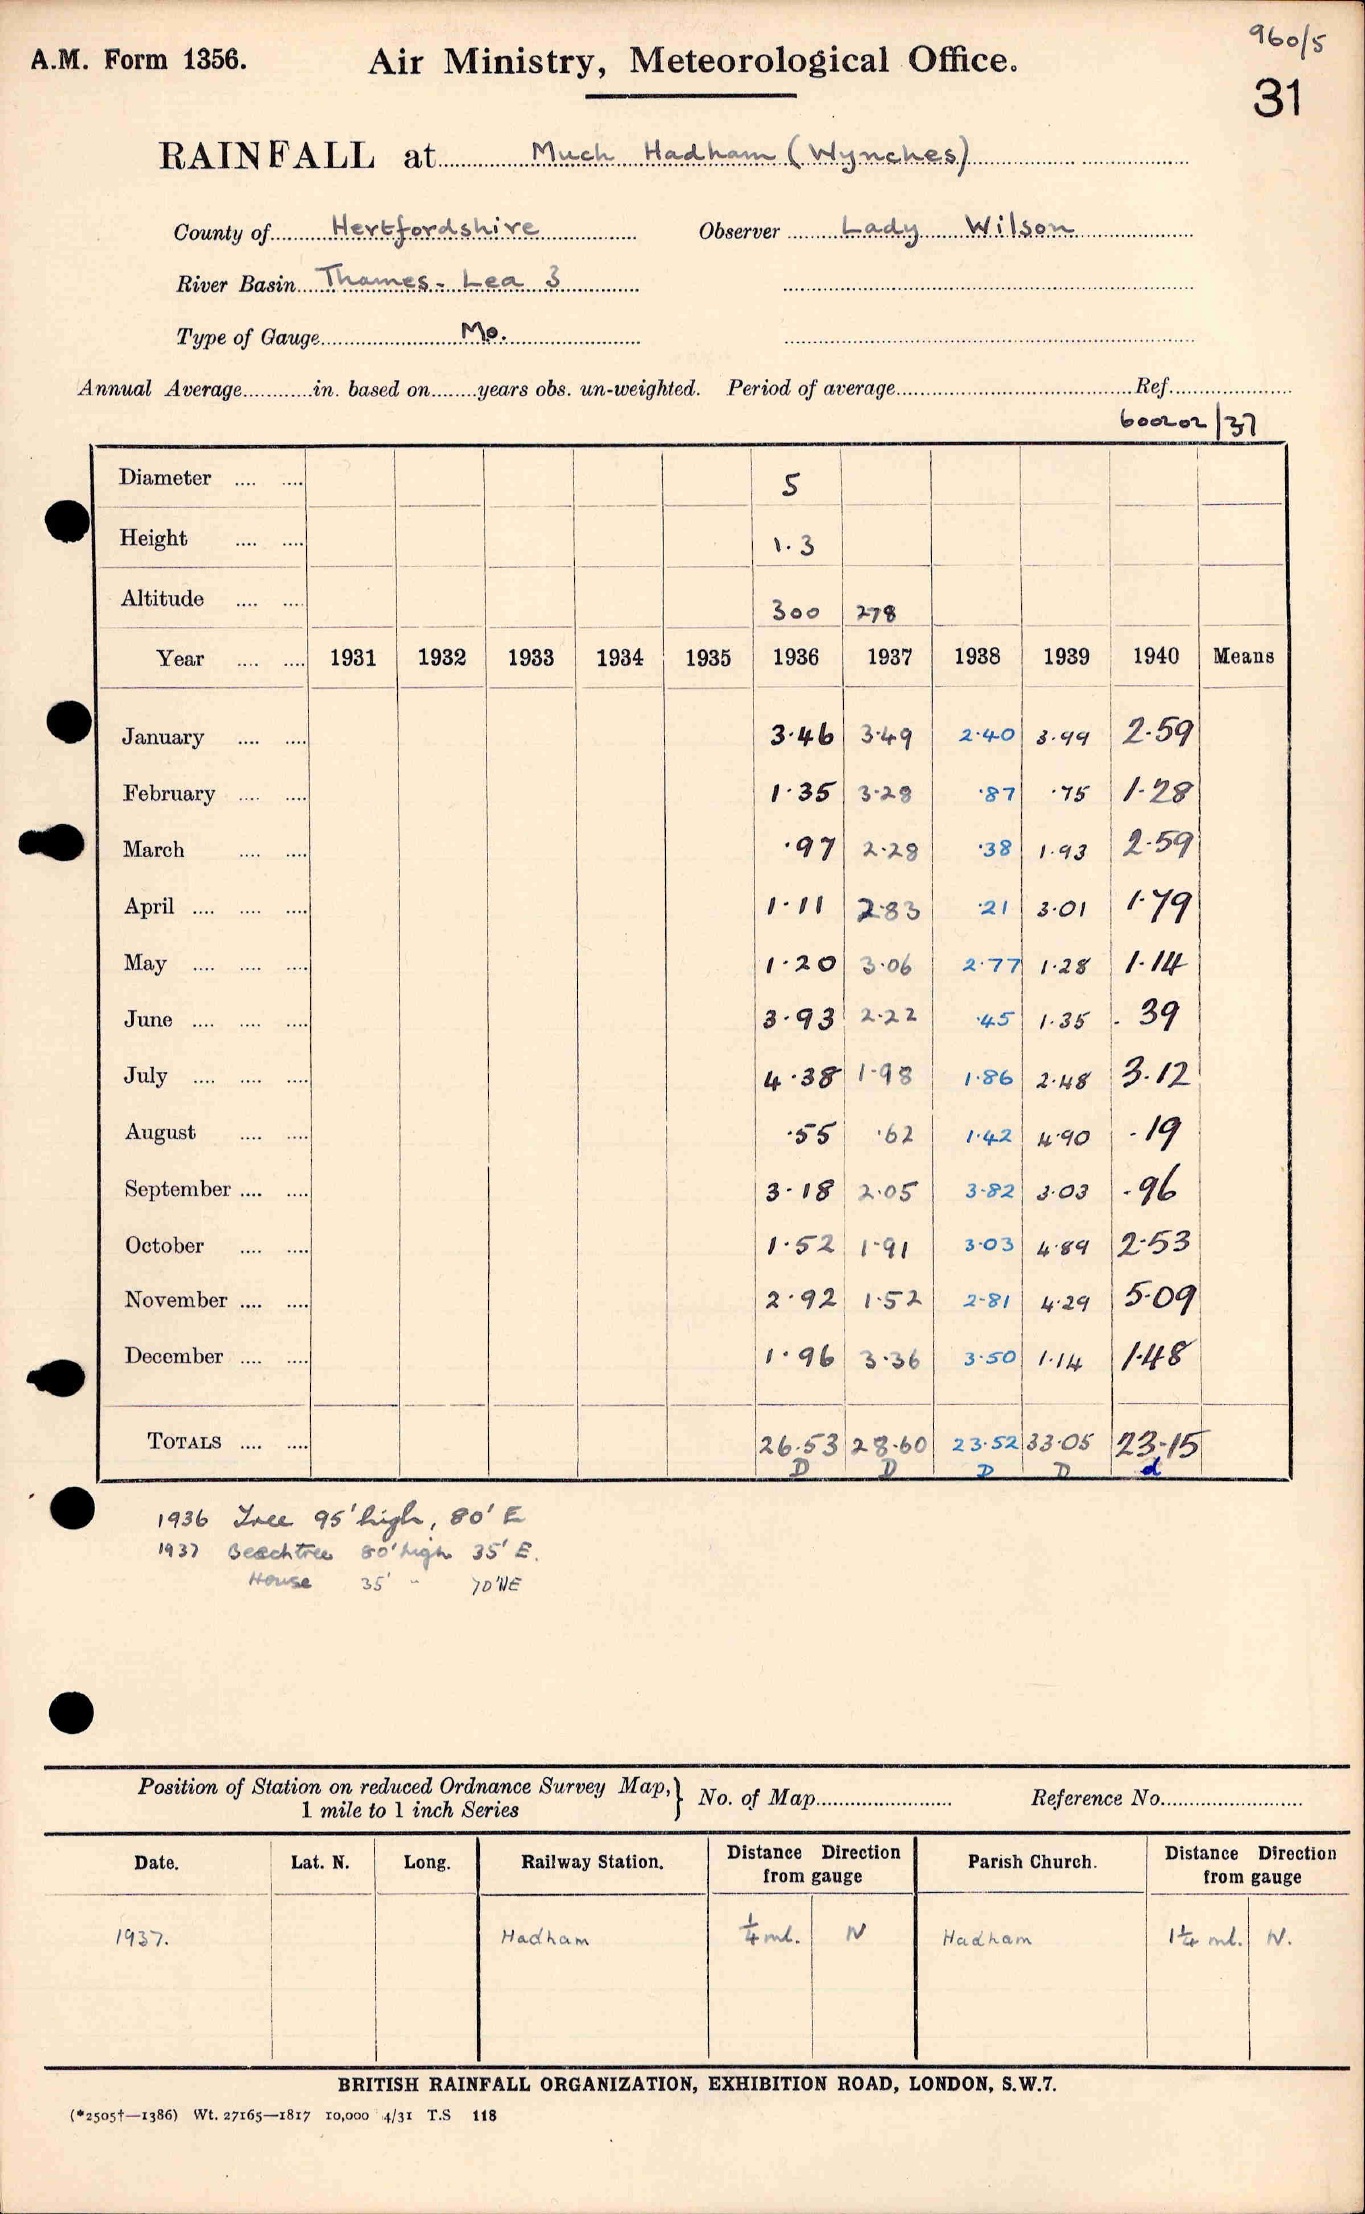 960/5
A.M. Form 1356. Air Ministry, Meteorological Office.
31
RAINFALL at Much Hadham (Wynches)
County of Hertfordshire Observer Lady Wilson
River Basin Thames - Lea 3
Type of Gauge Mo.
Annual Average in. based on years obs. un-weighted. Period of average Ref.
600202/37
Diameter 5
Height 1.3
Altitude 300 278
Year 1931 1932 1933 1934 1935 1936 1937 1938 1939 1940 Means
January 3.46 3.49 2.40 3.99 2.59
February 1.35 3.28 .87 .75 1.28
March .97 2.28 .38 1.93 2.59
April 1.11 2.83 .21 3.01 1.79
May 1.20 3.06 2.77 1.28 1.14
June 3.93 2.22 .45 1.35 .39
July 4.38 1.98 1.86 2.48 3.12
August .55 .62 1.42 4.90 .19
September 3.18 2.05 3.82 3.03 .96
October 1.52 1.91 3.03 4.89 2.53
November 2.92 1.52 2.81 4.29 5.09
December 1.96 3.36 3.50 1.14 1.48
TOTALS 26.53 28.60 23.52 33.05 23.15
D D D D d
1936 Tree 95' high, 80' E
1937 Beechtree 80' high 35' E.
House 35' " 70' NE
Position of Station on reduced Ordnance Survey Map, } No. of Map Reference No.
1 mile to 1 inch Series
Date. Lat. N. Long. Railway Station. Distance Direction from gauge Parish Church. Distance Direction from gauge
1937. Hadham 1/4 ml. N Hadham 1 1/4 ml. N.
BRITISH RAINFALL ORGANIZATION, EXHIBITION ROAD, LONDON, S.W.7.
(*2505†—1386) Wt. 27165—1817 10,000 4/31 T.S 118